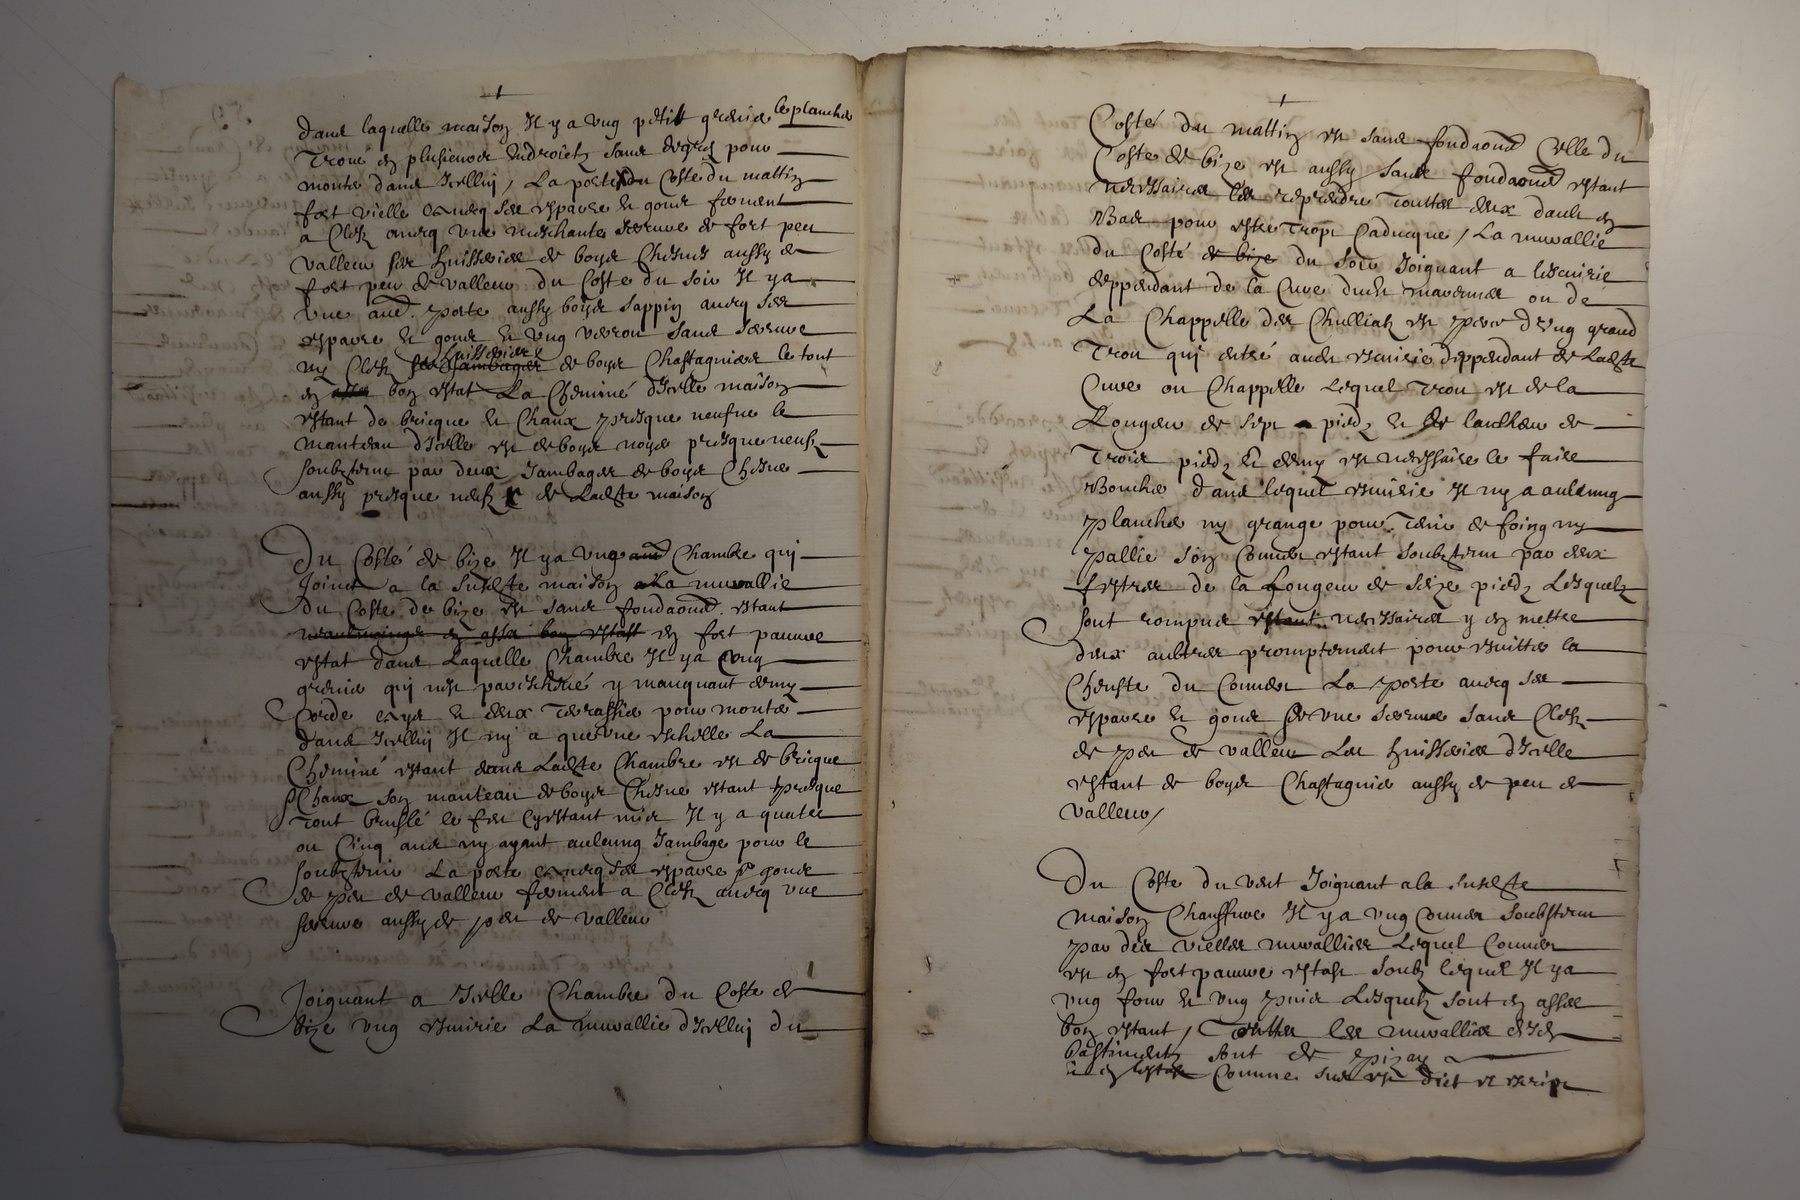 dans laquelle maison Il y a ung petitt grenier le plancher
Troué en plusieurs endroictz sans degrez pour
monter dans Icelluy / La porte du Costé du mattin
fort vielle avecq ses espares et gonds fermant
a Clefz avecq une meschante serrure de fort peu
valleur ses huisseries de boys Chesnes aussy de
fort peu de valleur du Coste du soir Il y a
une aud. porte aussy boys sappin avecq ses
espares et gonds et ung verrou sans serrure
ny Clefz ses Jambages huisseries de boys Chastagnier le tout
en assez bon estat La Cheminé d'Icelle maison
estant de bricque et Chaux presque neufve le
manteau d'Icelle est de boys noyer presque neufz
soubztenu par deux Jambages de boys Chesne
aussy presque neufz de Ladicte maison
Du Costé de bize Il y a ung Chambre qui
Joinct a la susdicte maison La murallie
du Coste de bize est sans fondaond. estant
neaulmoings en assez bon estatt en fort pauvre
estat dans Laquelle Chambre Il y a ung
grenier qui nest paracheué y manquant demy
Corde ays et deux Terassier pour monter
dans Icelluy Il ny a que une eschelle La
Cheminé estant dans Ladicte Chambre est de bricque
& Chaux son manteau de boys Chesne estant presque
tout bruslé le feu Cy estant mis Il y a quatre
ou Cinq ans ny ayant aulcung Jambage pour le
soubztenir La porte avecq ses espares & gonds
de peu de valleur fermant a Clefz avecq une
serrure aussy de peu de valleur
Joignant a Icelle Chambre du Coste de
bize ung escuirie La murallie d'Icelluy du
Costé du mattin est sans fondaond Celle du
Coste de bize est aussy sans fondaond estant
necessaires les reprendre Touttes deux dault en
Bas pour estre Trop Caducque / La murallie
du Costé de bize du soir Joignant a lescuirie
deppendant de la Cure dudict ou de
La Chappelle des Chulliatz est percé d'ung grand
Trou qui entre audict escuirie deppendant de Ladicte
Cure ou Chappelle Lequel Trou est de la
Longeur de sept piedz et de laulteur de
Trois piedz et demy est necessaire le faire
Boucher dans lequel escuirie Il ny a aulcung
plancher ny grange pour Tenir de foing ny
pallie son Couvert estant soubztenu par deux
festres de la Longeur de seize piedz Lesquelz
sont rompus estant necessaires y en mettre
deux aultres promptement pour esvitter la
Cheuste du Couvert La porte avecq ses
espares et gonds de une serrure sans Clefz
de peu de valleur Les huisseries d'Icelle
estant de boys Chastagnier aussy de peu de
valleur /
Du Coste du vent Joignant a la susdicte
maison Chauffure Il y a ung Couvert soubstenu
par des vielles murallies Lequel Couvert
est en fort pauvre estast soubz lequel Il y a
ung four et ung puis Lesquelz sont en assez
bon estant / Touttes les murallies desd
bastimentz sont de pizay
et en estast Comme sus est dict et escript